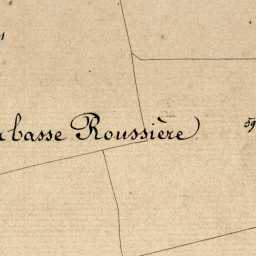 basse Roussière
59